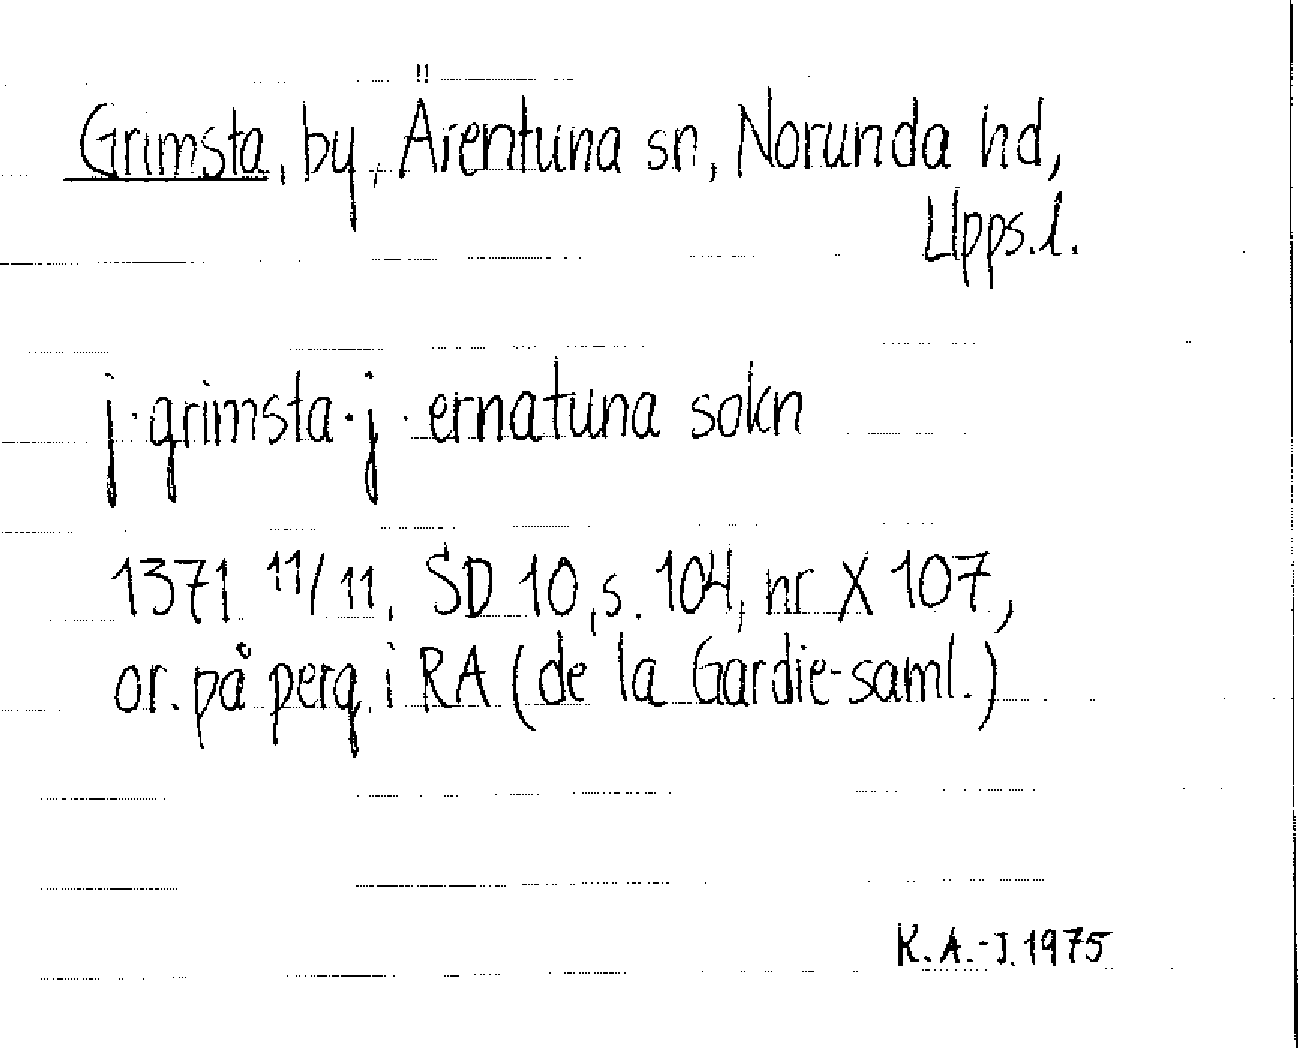 Grimsta, by, Ärentuna sn, Norunda hd,
Upps.l.
j · grimsta · j · ernatuna sokn
1371 11/11, SD 10, s. 104, nr X 107,
or. på perg. i RA (de la Gardie-saml.)
K.A.-J. 1975